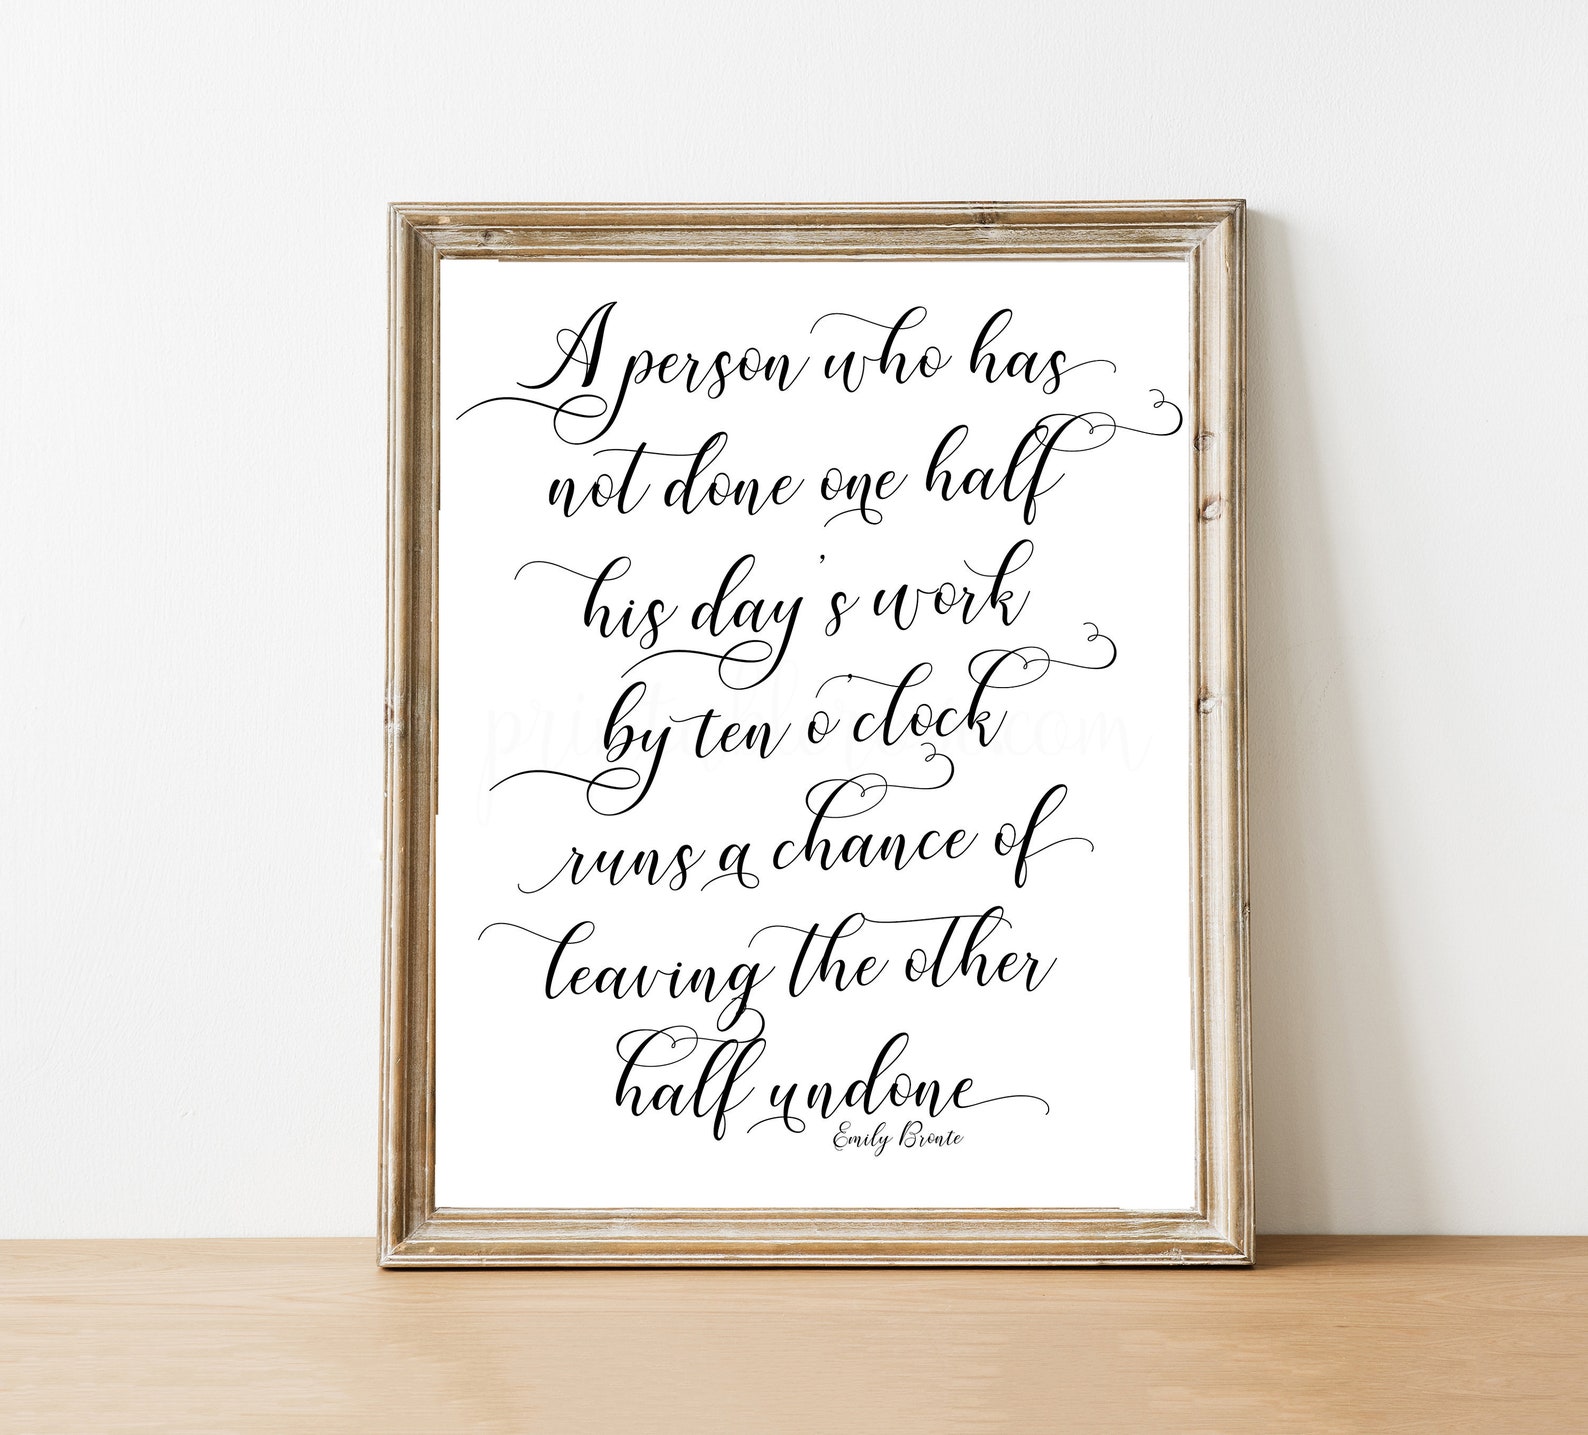 A person who has
not done one half
his day's work
by ten o'clock
runs a chance of
leaving the other
half undone
Emily Bronte